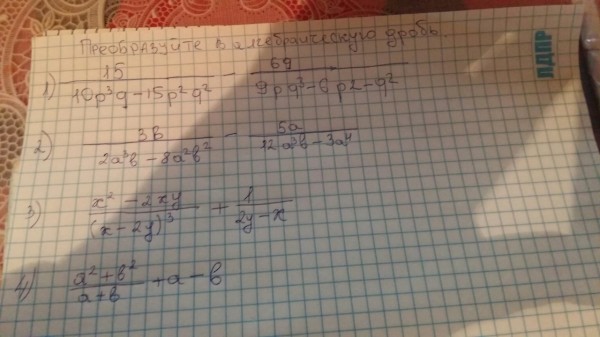 Преобразуйте в алгебраическую дробь
1) 15/(10p³q-15p²q²) - 6q/(9pq³-6p2-q²)
2) 3b/(2a³b-8a²b²) - 5a/(12a³b-3a⁴)
3) (x²-2xy)/(x-2y)³ + 1/(2y-x)
4) (a²+b²)/(a+b) + a - b
ЛДПР